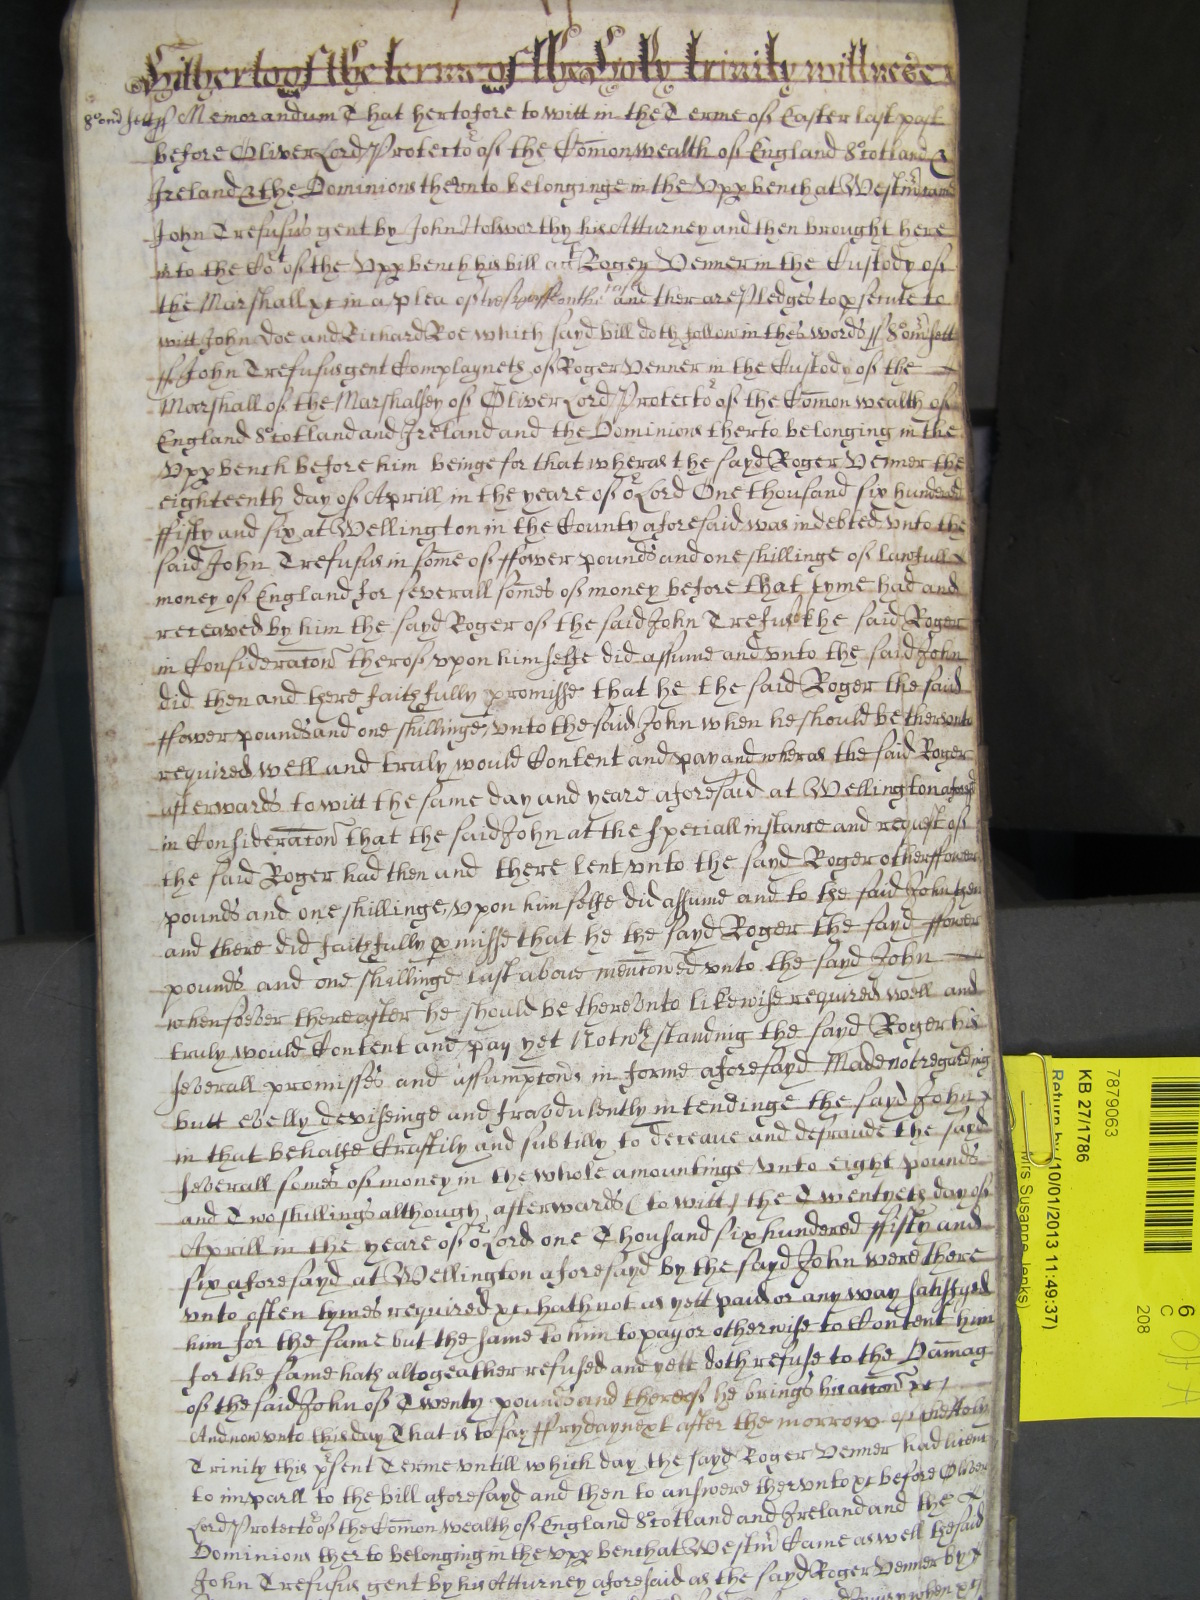 Hitherto of the terme of the Holy trinity wittnese
Somersett ss Memorandum That hertofore to witt in the Terme of Easter last past
before Oliver Lord Protector of the Com̄onwealth of England Scotland &
Ireland & the Dominions therunto belonginge in the Upp bench at Westmr came
John Trefusis gent by John Holworthy his Atturney and then brought here
in to the Cort of the Upp bench his bill agt Roger Venner in the Custody of
the Marshall &c in a plea of trespasse on the case and ther are Pledges to psecute to
witt John Doe and Richard Roe which sayd bill doth follow in thes words ss Somersett
ss John Trefusis gent Complayneth of Roger Venner in the Custody of the
Marshall of the Marshalsey of Oliver Lord Protector of the Com̄on wealth of
England Scotland and Ireland and the Dominions therto belonging in the
Upp bench before him beinge for that wheras the sayd Roger Venner the
eighteenth day of Aprill in the yeare of or Lord One thousand six hundred
ffifty and six at Wellington in the County aforesaid was indebted unto the
said John Trefusis in som̄e of ffower pounds and one shillinge of lawfull
money of England for severall som̄es of money before that tyme had and
receaved by him the sayd Roger of the said John Trefusis the said Roger
in Consideracon therof upon himselfe did assume and unto the said John
did then and there faithfully promisse that he the said Roger the said
ffower pounds and one shillinge, unto the said John when he should be therunto
required well and truly would Content and pay and wheras the said Roger
afterwards to witt the same day and yeare aforesaid at Wellington aforsd
in Consideracon that the said John at the speciall instance and request of
the said Roger had then and there lent unto the sayd Roger other ffower
pounds and one shillinge, upon himselfe did assume and to the said John then
and there did faithfully pmisse that he the sayd Roger the sayd ffower
pounds and one shillinge last above mencōned unto the sayd John
whensoever thereafter he should be thereunto likewise required well and
truly would Content and pay yet Notwthstanding the sayd Roger his
severall promisses and assumpcons in forme aforesayd Made not regarding
butt evelly deviseinge and fraudulently intendinge the sayd John
in that behalfe Craftily and subtilly to deceave and defraude the sayd
severall som̄es of money in the whole amountinge unto eight pounds
and Two shillings although afterwards (to witt) the Twentyeth day of
Aprill in the yeare of or Lord one Thousand six hundered ffifty and
six aforesayd at Wellington aforesayd by the sayd John were there
unto often tymes required &c hath not as yett paid or any way satisfyed
him for the same but the same to him to pay or otherwise to Content him
for the same hath altogeather refused and yett doth refuse to the Damag
of the said John of Twenty pounds and thereof he brings his accon &c
And now unto this day That is to say ffryday next after the morrow of the Holy
Trinity this psent Terme untill which day the sayd Roger Venner had licence
to imparll to the bill aforesayd and then to answere therunto &c before Oliver
Lord Protector of the Com̄on wealth of England Scotland and Ireland and the
Dominions therto belonging in the Upp bench at Westmr Came as well the said
John Trefusis gent by his Atturney aforesaid as the sayd Roger Venner by
7879063
KB 27/1786
Return by (10/01/2013 11:49:37)
Mrs Susanne Jenks)
6
C
208